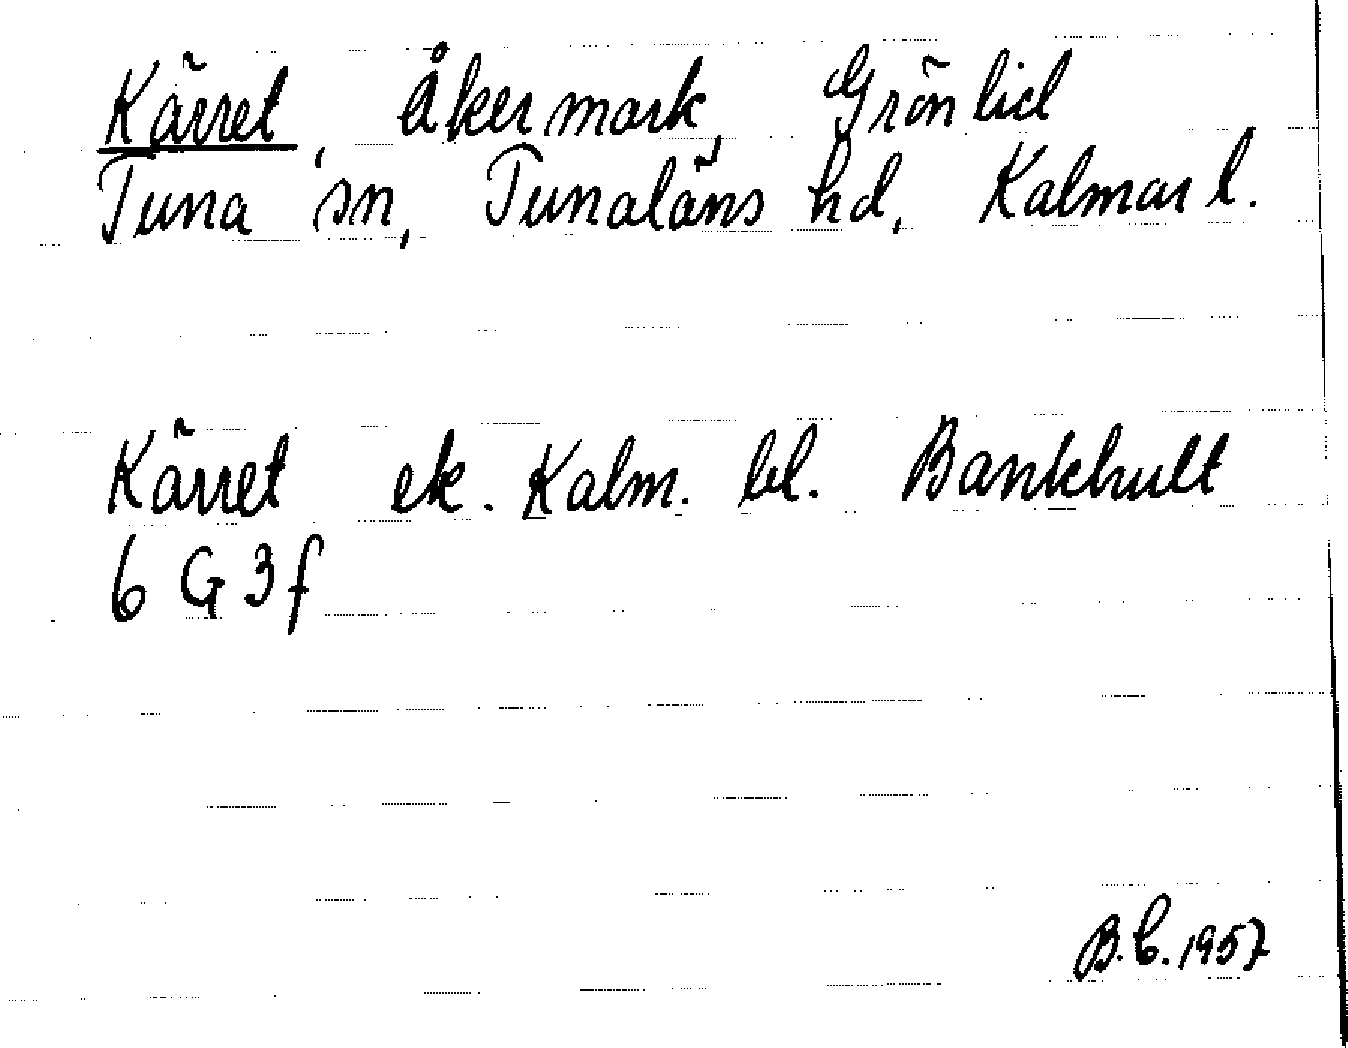 Kärret, Åkermark, Grönlid
Tuna sn, Tunaläns hd, Kalmar l.
Kärret ek. Kalm. bl. Bankhult
6 G 3f
B.C. 1957